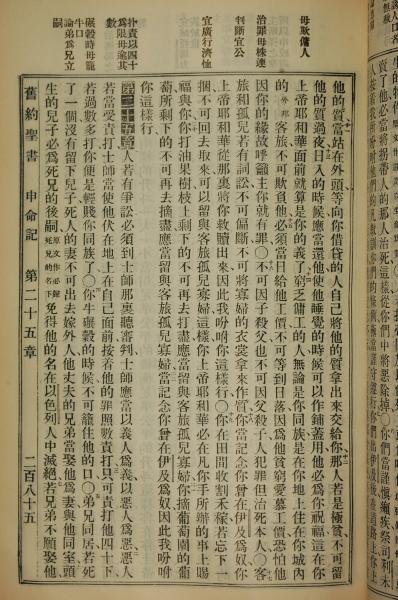 母欺傭人
治罪母株連
判斷宜公
宜廣行濟恤
扑責以四十爲限母逾其數
碾穀時母籠牛口
論弟爲兄立
他的質當站在外頭等向你借貸的人自己將他的質拿出來交給你那人若是極貧不可留
他的質過夜日入的時候應當還他使他睡覺的時候可以作鋪蓋用他必爲你祝福這在你
上帝耶和華面前就算是你的義了窮乏傭工的人無論是你同族是在你地上住在你城內
的外邦客旅不可欺負他必須當日給他工價不可等到日落因爲他貧窮愛慕工價恐怕他
因你的緣故呼籲主你就有罪〇不可因子殺父也不可因父殺子人犯罪但治死本人〇客
旅和孤兒若有詞訟不可偏斷不可將寡婦的衣裳拿來作質你當記念你曾在伊及爲奴你
上帝耶和華從那裏將你救贖出來因此我吩咐你這樣行〇你在田間收割禾稼若忘下一
捆不可回去取來可以留與客旅孤兒寡婦這樣你上帝耶和華必在凡你手所辦的事上賜
福與你你打油果樹枝上剩下的不可再去打盡應當留與客旅孤兒寡婦你摘葡萄園的葡
萄所剩下的不可再去摘盡應當留與客旅孤兒寡婦當記念你曾在伊及爲奴因此我吩咐
你這樣行
第二十五章人若有爭訟必須到士師那裏聽審判士師應當以義人爲義以惡人爲惡惡人
若當受責打士師當使他伏在地上在自己面前按着他的罪照數責打只可責打他四十下
若過數多打你便是輕賤你同族了〇你牛碾穀的時候不可籠住他的口〇弟兄同居若死
了一個沒有留下兒子死人的妻不可出去嫁外人他丈夫的兄弟當娶他爲妻與他同室頭
生的兒子必爲死兄的後嗣原文作必歸死兄的名下免得他的名在以色列人中滅絕若兄弟不願娶他
舊約聖書 申命記 第二十五章 二百八十五